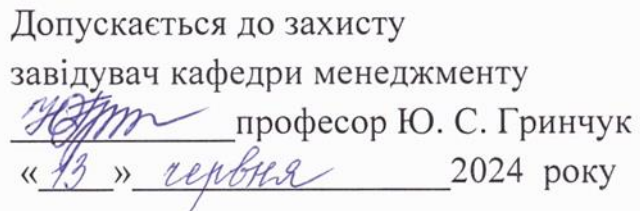 Допускається до захисту
завідувач кафедри менеджменту
професор Ю. С. Гринчук
«13» червня 2024 року